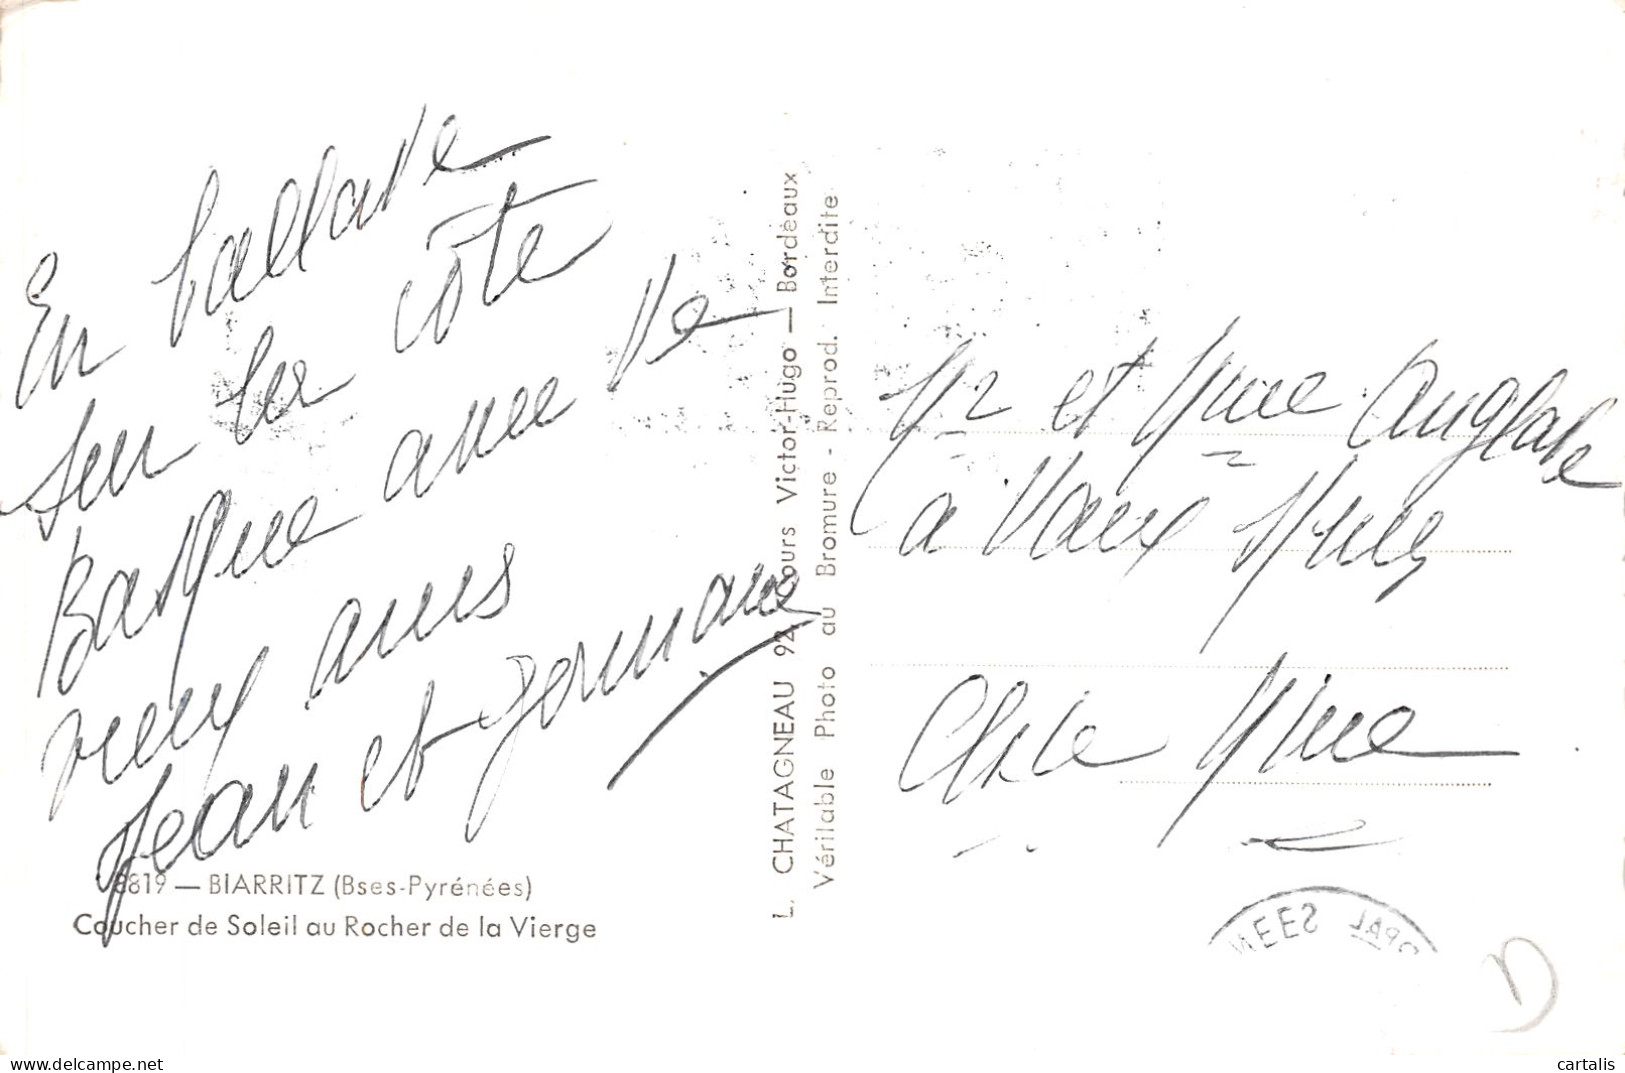 En ballade
sur la côte
Basque avec de
vieux amis
Jean et Germaine
8819 — BIARRITZ (Bses-Pyrénées)
Coucher de Soleil au Rocher de la Vierge
L. CHATAGNEAU 92 Cours Victor-Hugo — Bordeaux
Véritable Photo au Bromure - Reprod. Interdite
Mr et Mme Anglade
à Vaux
NEES
cartalis